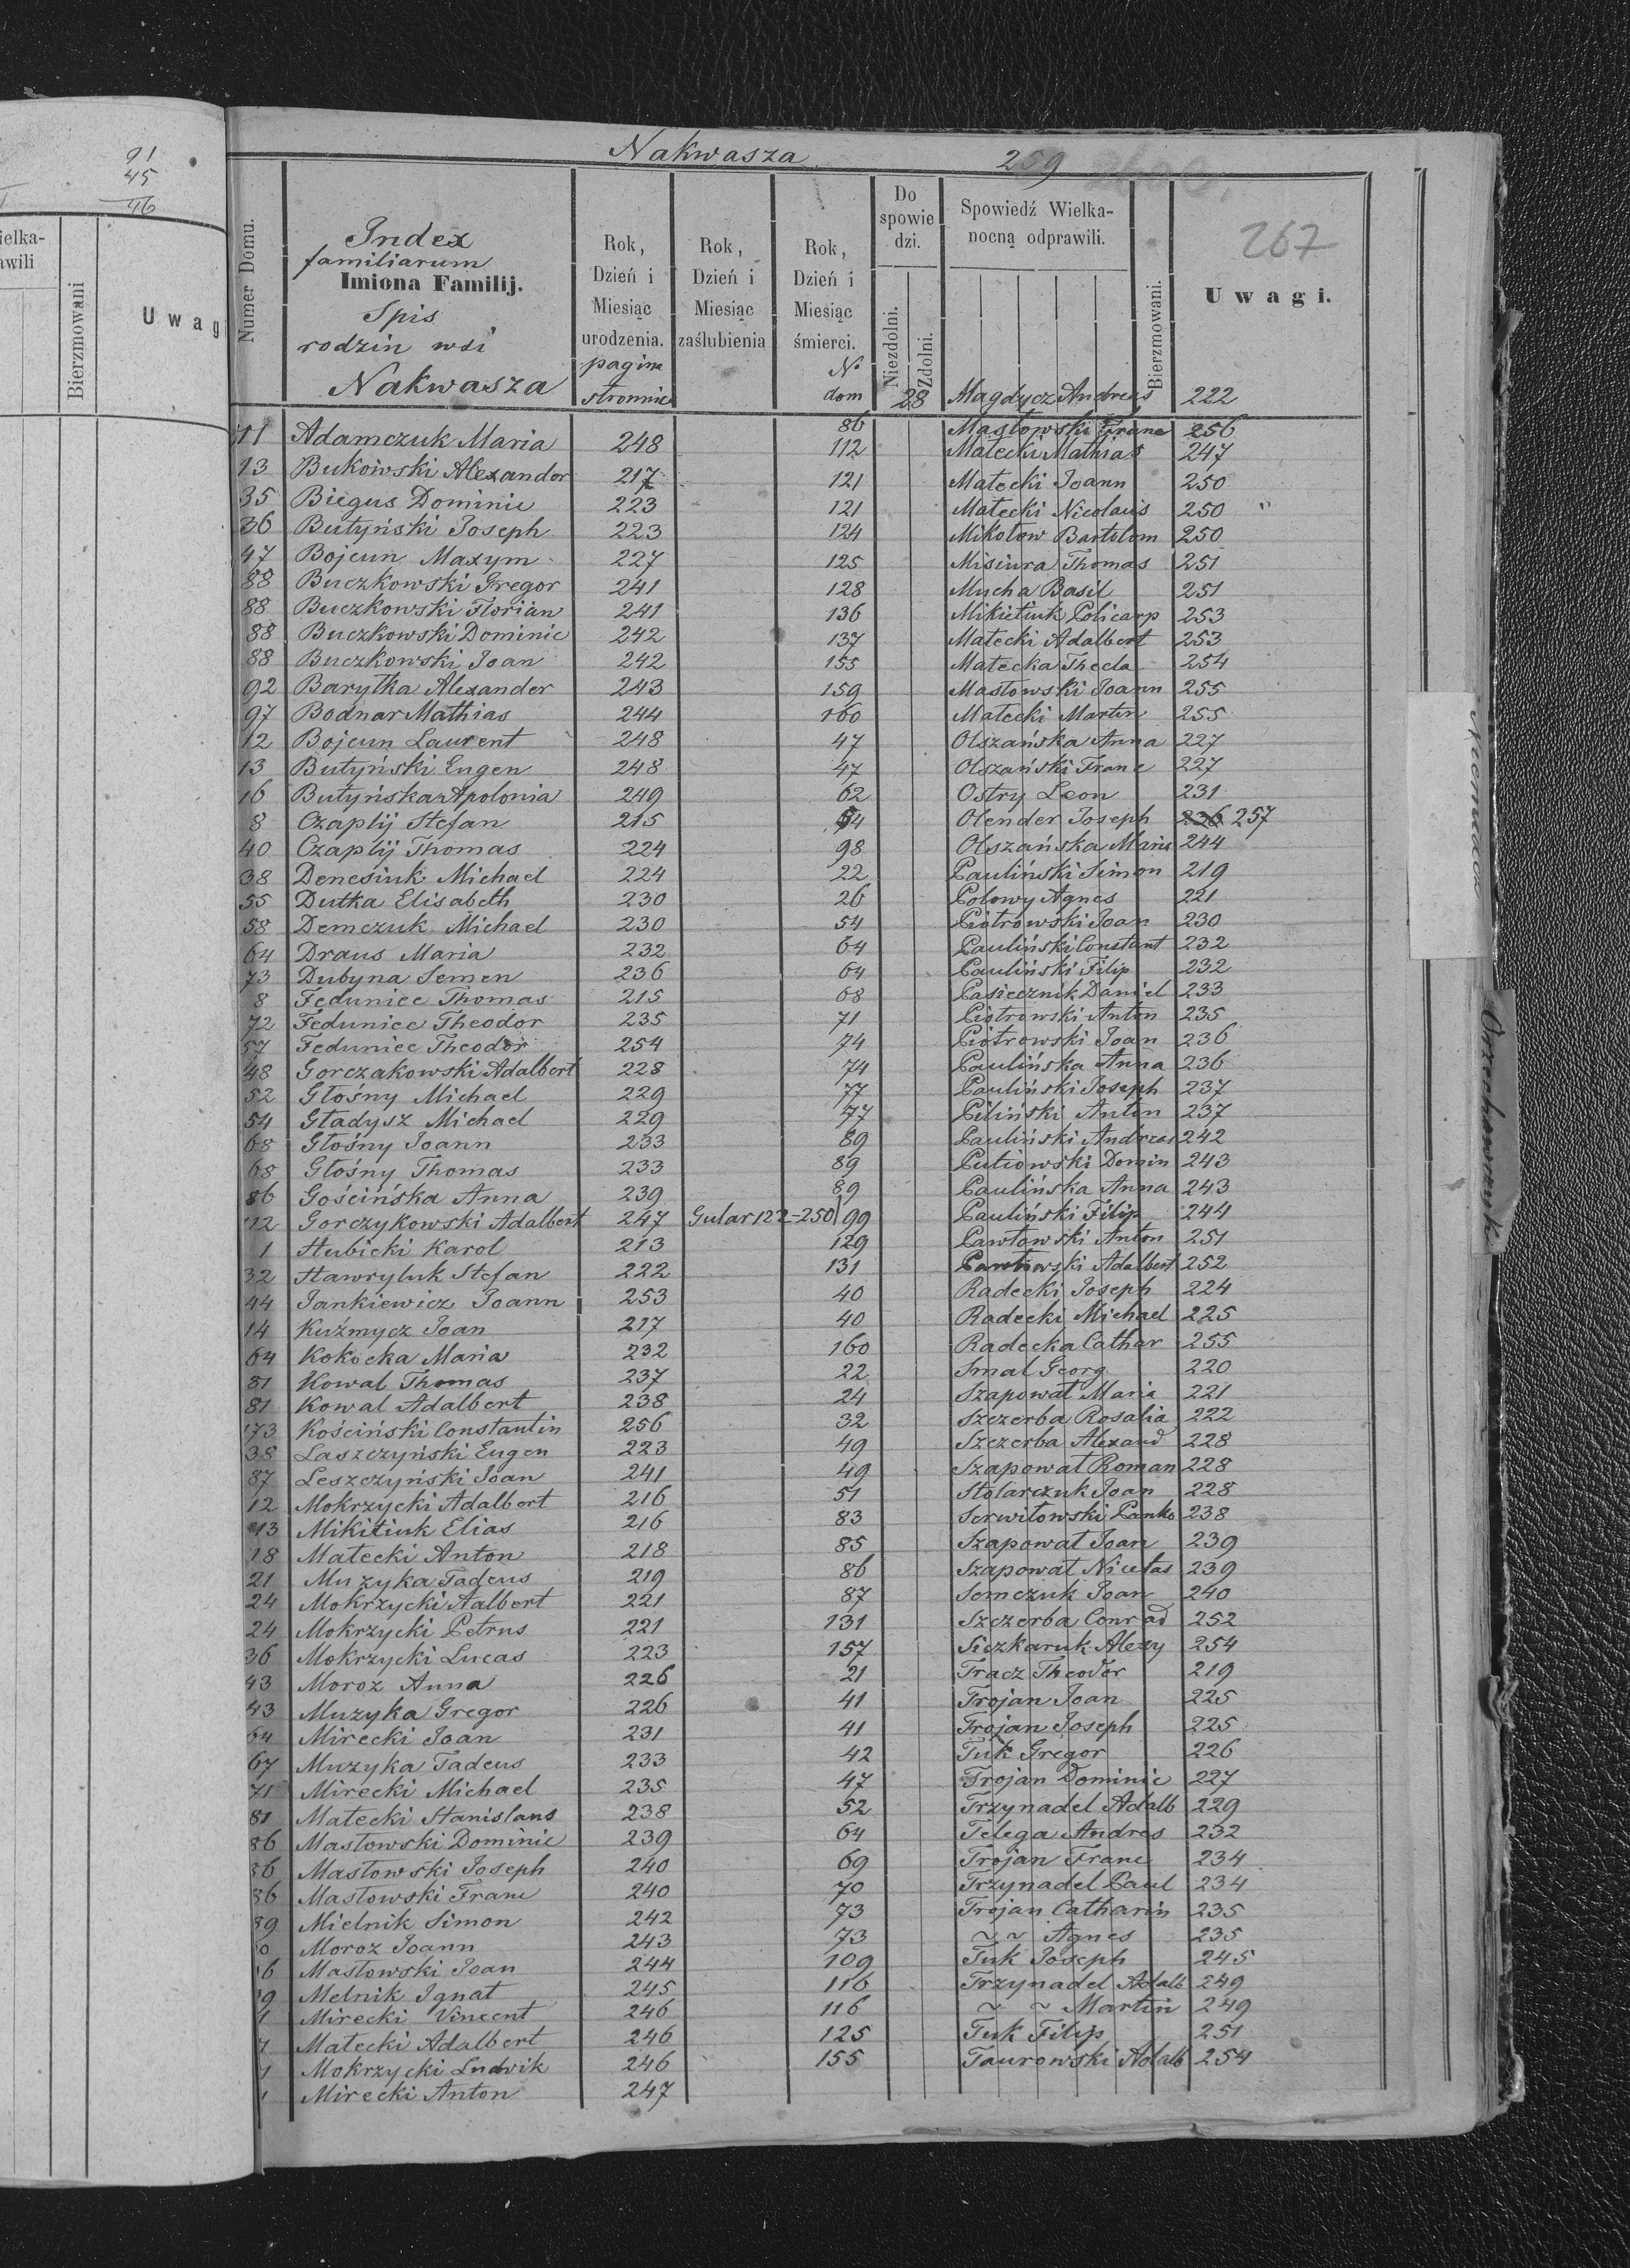 91
45
46
ielka-
awili
Bierzmowani
Uwag
Nakwasza
259
267
Numer Domu.
Index
familiarum
Imiona Familij.
Spis
rodzin wsi
Nakwasza
Rok, Dzień i Miesiąc urodzenia.
pagina
stronnic
Rok, Dzień i Miesiąc zaślubienia
Rok, Dzień i Miesiąc śmierci.
No
dom
Do spowie dzi.
Niezdolni.
Zdolni.
Spowiedź Wielka-
nocną odprawili.
Bierzmowani.
Uwagi.
28 Magdycz Andreas 222
11 Adamczuk Maria 248
13 Bukowski Alexander 217
35 Biegus Dominic 223
36 Butyński Joseph 223
47 Bojcun Maxym 227
88 Buczkowski Gregor 241
88 Buczkowski Florian 241
88 Buczkowski Dominic 242
88 Buczkowski Joan 242
92 Baryłka Alexander 243
97 Bodnar Mathias 244
12 Bojcun Laurent 248
13 Butyński Eugen 248
16 Butyńska Apolonia 249
8 Czaplij Stefan 215
40 Czaplij Thomas 224
38 Denesiuk Michael 224
55 Dutka Elisabeth 230
58 Demczuk Michael 230
64 Draus Maria 232
73 Dubyna Semen 236
8 Feduniec Thomas 215
72 Feduniec Theodor 235
57 Feduniec Theodor 254
48 Gorczakowski Adalbert 228
52 Głośny Michael 229
54 Gładysz Michael 229
68 Głośny Joann 233
68 Głośny Thomas 233
86 Gościńska Anna 239
112 Gorczykowski Adalbert 247 Gular 122-250
1 Hubicki Karol 213
32 Hawryluk Stefan 222
44 Jankiewicz Joann 253
14 Kuźmycz Joan 217
64 Kokocka Maria 232
81 Kowal Thomas 237
81 Kowal Adalbert 238
173 Kościński Constantin 256
38 Laszczyński Eugen 223
87 Leszczyński Joan 241
12 Mokrzycki Adalbert 216
13 Mikitiuk Elias 216
18 Małecki Anton 218
21 Muzyka Tadeus 219
24 Mokrzycki Aalbert 221
24 Mokrzycki Petrus 221
36 Mokrzycki Lucas 223
43 Moroz Anna 226
43 Muzyka Gregor 226
64 Mirecki Joan 231
67 Muzyka Tadeus 233
71 Mirecki Michael 235
81 Małecki Stanislaus 238
86 Masłowski Dominic 239
86 Masłowski Joseph 240
86 Masłowski Franc 240
89 Mielnik Simon 242
0 Moroz Joann 243
6 Masłowski Joan 244
9 Melnik Ignat 245
1 Mirecki Vincent 246
Małecki Adalbert 246
Mokrzycki Ludwik 246
Mirecki Anton 247
86 Masłowski Franc 256
112 Małecki Mathias 247
121 Małecki Joann 250
121 Małecki Nicolaus 250
124 Mikołow Bartolom 250
125 Misiura Thomas 251
128 Mucha Basil 251
136 Mikitiuk Policarp 253
137 Małecki Adalbert 253
155 Małecka Thecla 254
159 Masłowski Joann 255
160 Małecki Martin 255
47 Olszańska Anna 227
47 Olszański Franc 227
62 Ostry Leon 231
54 Olender Joseph 236 257
98 Olszańska Maria 244
22 Pauliński Simon 219
26 Polowy Agnes 221
54 Piotrowski Joan 230
64 Pauliński Constant 232
64 Pauliński Filip 232
68 Pasiecznik Daniel 233
71 Piotrowski Anton 235
74 Piotrowski Joan 236
74 Paulińska Anna 236
77 Pauliński Joseph 237
77 Piliński Anton 237
89 Pauliński Andreas 242
89 Putiowski Domin 243
89 Paulińska Anna 243
99 Pauliński Filip 244
129 Pawłowski Anton 251
131 Pawłowski Adalbert 252
40 Radecki Joseph 224
40 Radecki Michael 225
160 Radecka Cathar 255
22 Smal Georg 220
24 Szapował Maria 221
32 Szczerba Rosalia 222
49 Szczerba Alexand 228
49 Szapował Roman 228
51 Stolarczuk Joan 228
83 Serwitowski Panko 238
85 Szapował Joan 239
86 Szapował Nicetas 239
87 Semczuk Joan 240
131 Szczerba Conrad 252
157 Siczkaruk Alexy 254
21 Tracz Theodor 219
41 Trojan Joan 225
41 Trojan Joseph 225
42 Tuk Gregor 226
47 Trojan Dominic 227
52 Trzynadel Adalb 229
64 Telega Andres 232
69 Trojan Franc 234
70 Trzynadel Paul 234
73 Trojan Catharin 235
73 ~ ~ Agnes 235
109 Tuk Joseph 245
116 Trzynadel Adalb 249
116 ~ ~ Martin 249
125 Tuk Filip 251
155 Taurowski Adalb 254
Orzechowczuk